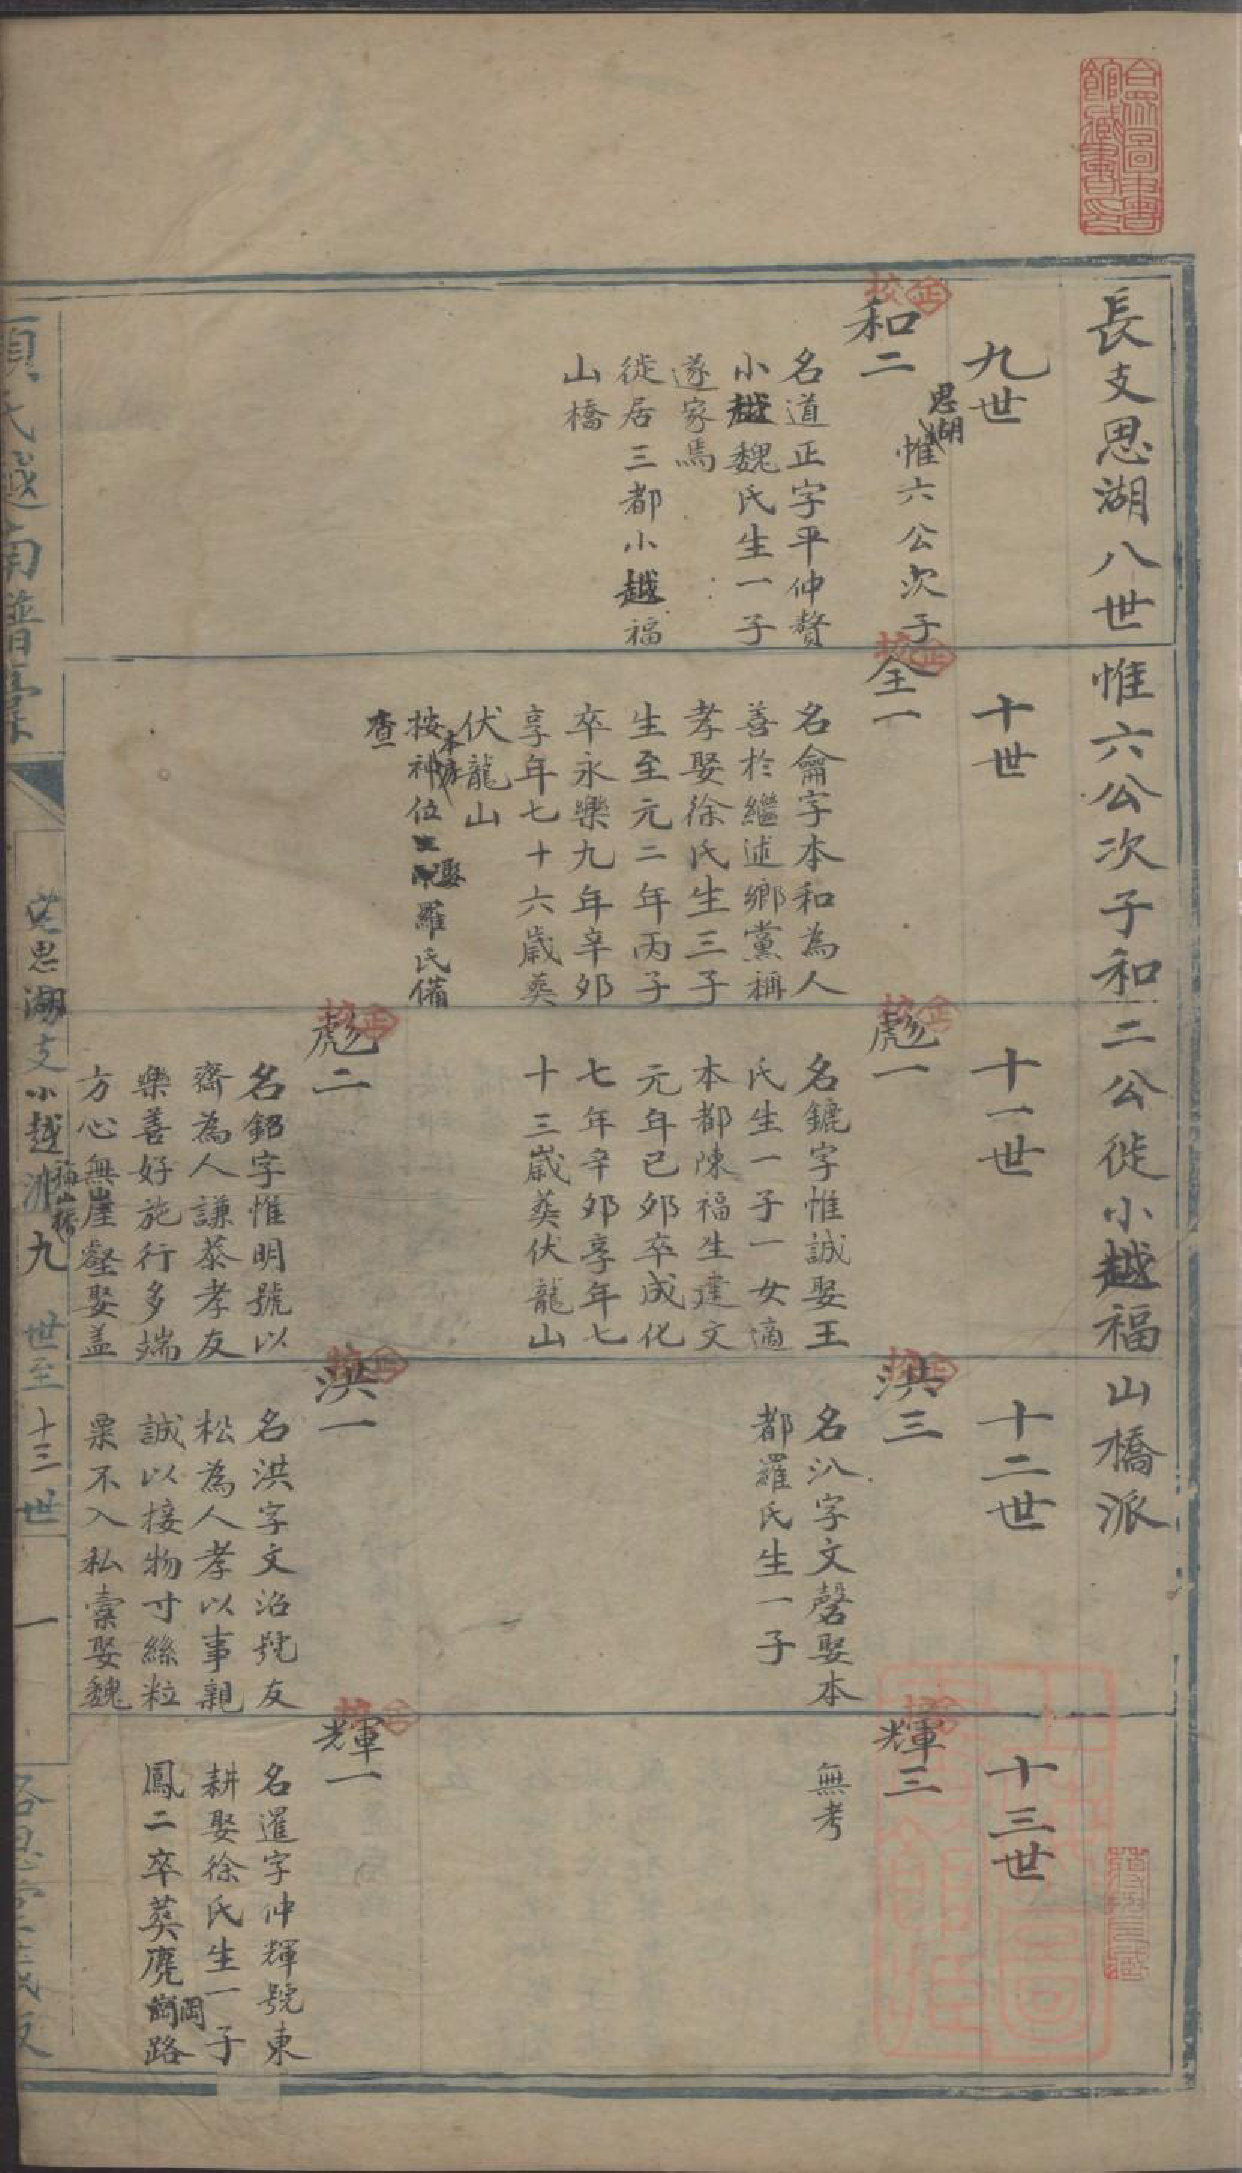 長支思湖八世惟六公次子和二公徙小越福山橋派
九世
思湖
惟六公次子
和二
名道正字平仲贅
小越魏氏生一子
遂家焉
徙居三都小越福
山橋
十世
全一
名龠字本和為人
善於繼述鄉黨稱
孝娶徐氏生三子
生至元二年丙子
卒永樂九年辛夘
享年七十六歲葬
伏龍山
按神位
娶
羅氏備
查
十一世
彪一
名鏕字惟誠娶王
氏生一子一女適
本都陳福生建文
元年已夘卒成化
七年辛夘享年七
十三歲葬伏龍山
彪二
名鉊字惟明號以
齋為人謙恭孝友
樂善好施行多端
方心無崖壑娶盖
十二世
洪三
名汃字文磬娶本
都羅氏生一子
洪一
名洪字文治號友
松為人孝以事親
誠以接物寸絲粒
粟不入私橐娶魏
十三世
輝三
無考
輝一
名暹字仲輝號東
耕娶徐氏生一子
鳳二卒葬麂
岡
路
思湖支小越
福山橋
派九世至十三世
一
校正
校正
校正
校正
校正
校正
校正
校正